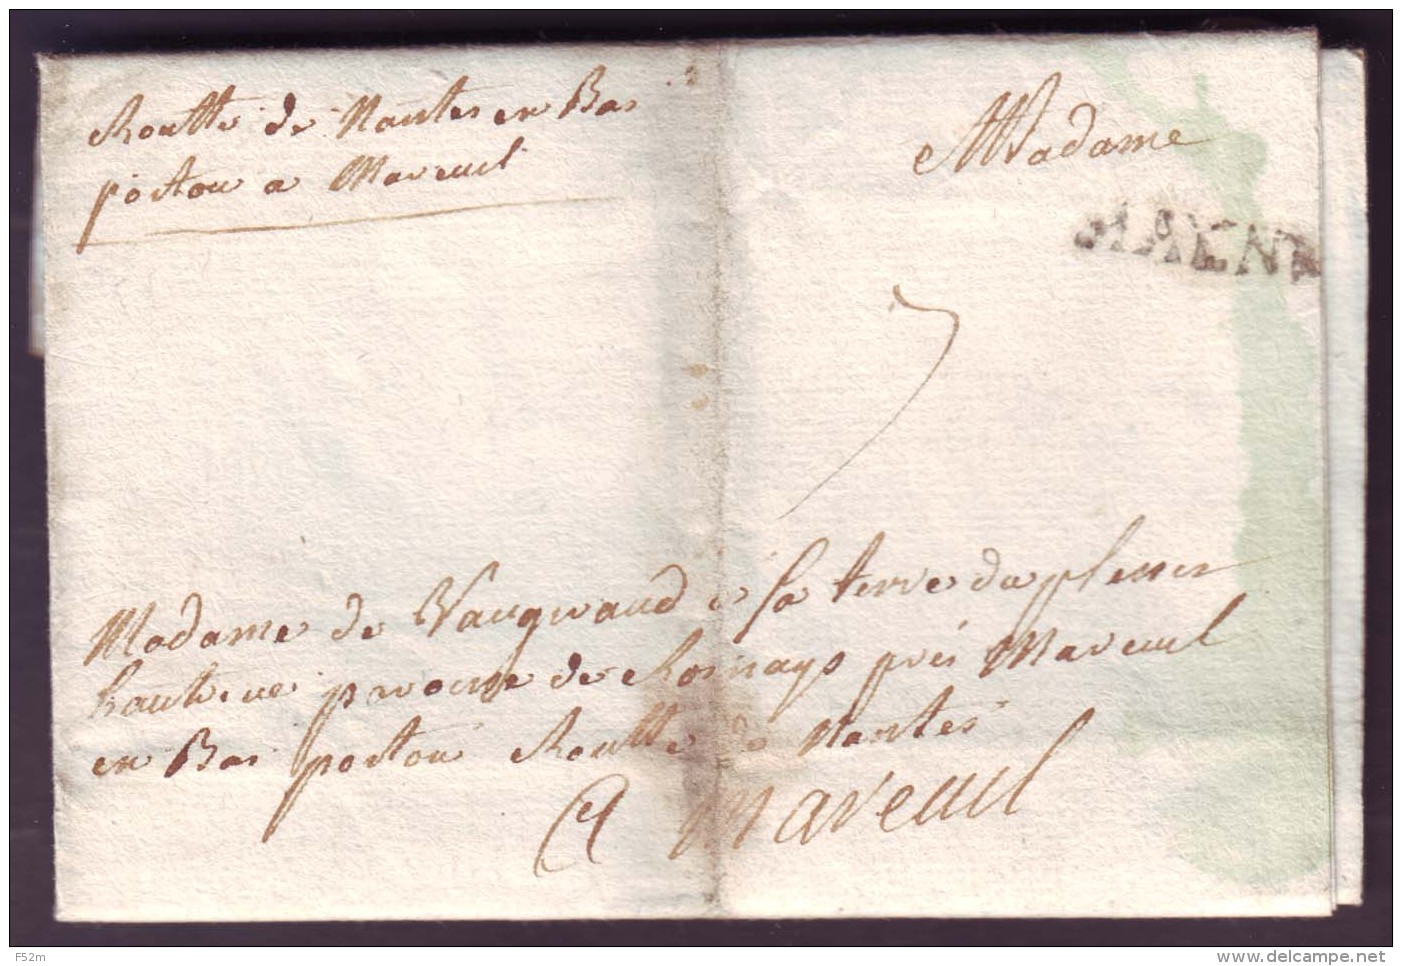 Routte de Nantes en Bas
poitou a Mareuil
Madame
MAYENE
7
Madame de Vaugiraud a sa terre du plessis
hauterive paroisse de Rosnays prés Mareuil
en Bas poitou Routte de Nantes
A Mareuil
F52m
www.delcampe.net